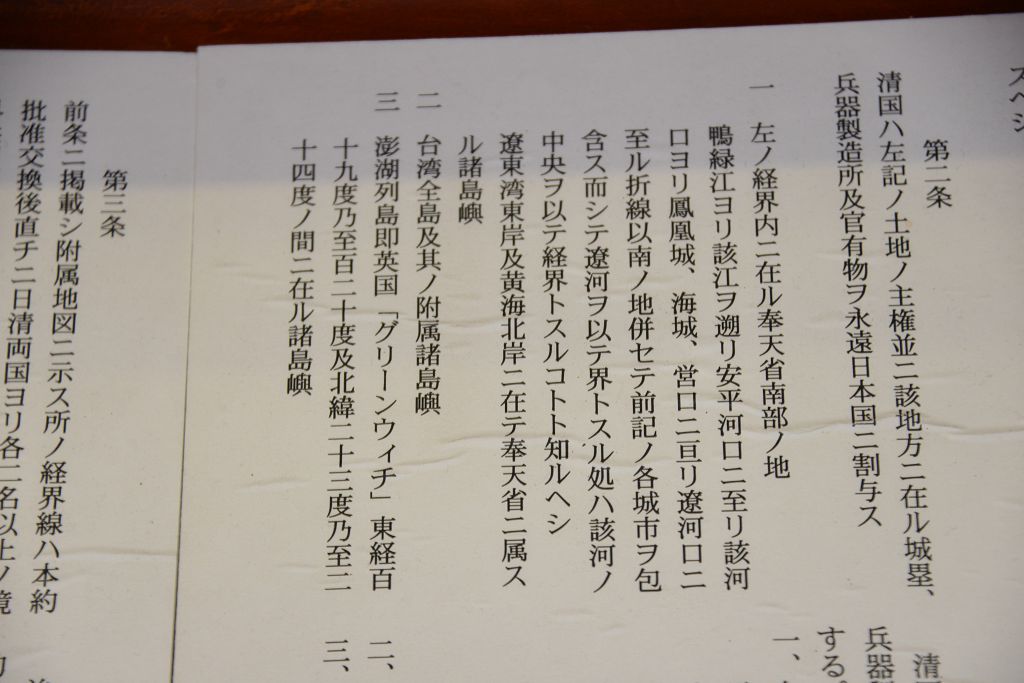 スヘシ
第二条
清国ハ左記ノ土地ノ主権並ニ該地方ニ在ル城塁、
兵器製造所及官有物ヲ永遠日本国ニ割与ス
一 左ノ経界内ニ在ル奉天省南部ノ地
鴨緑江ヨリ該江ヲ遡リ安平河口ニ至リ該河
口ヨリ鳳凰城、海城、営口ニ亘リ遼河口ニ
至ル折線以南ノ地併セテ前記ノ各城市ヲ包
含ス而シテ遼河ヲ以テ界トスル処ハ該河ノ
中央ヲ以テ経界トスルコトト知ルヘシ
遼東湾東岸及黄海北岸ニ在テ奉天省ニ属ス
ル諸島嶼
二 台湾全島及其ノ附属諸島嶼
三 澎湖列島即英国「グリーンウィチ」東経百
十九度乃至百二十度及北緯二十三度乃至二
十四度ノ間ニ在ル諸島嶼
清
兵器
する
一、
二、
三、
第三条
前条ニ掲載シ附属地図ニ示ス所ノ経界線ハ本約
批准交換後直チニ日清両国ヨリ各二名以上ノ境